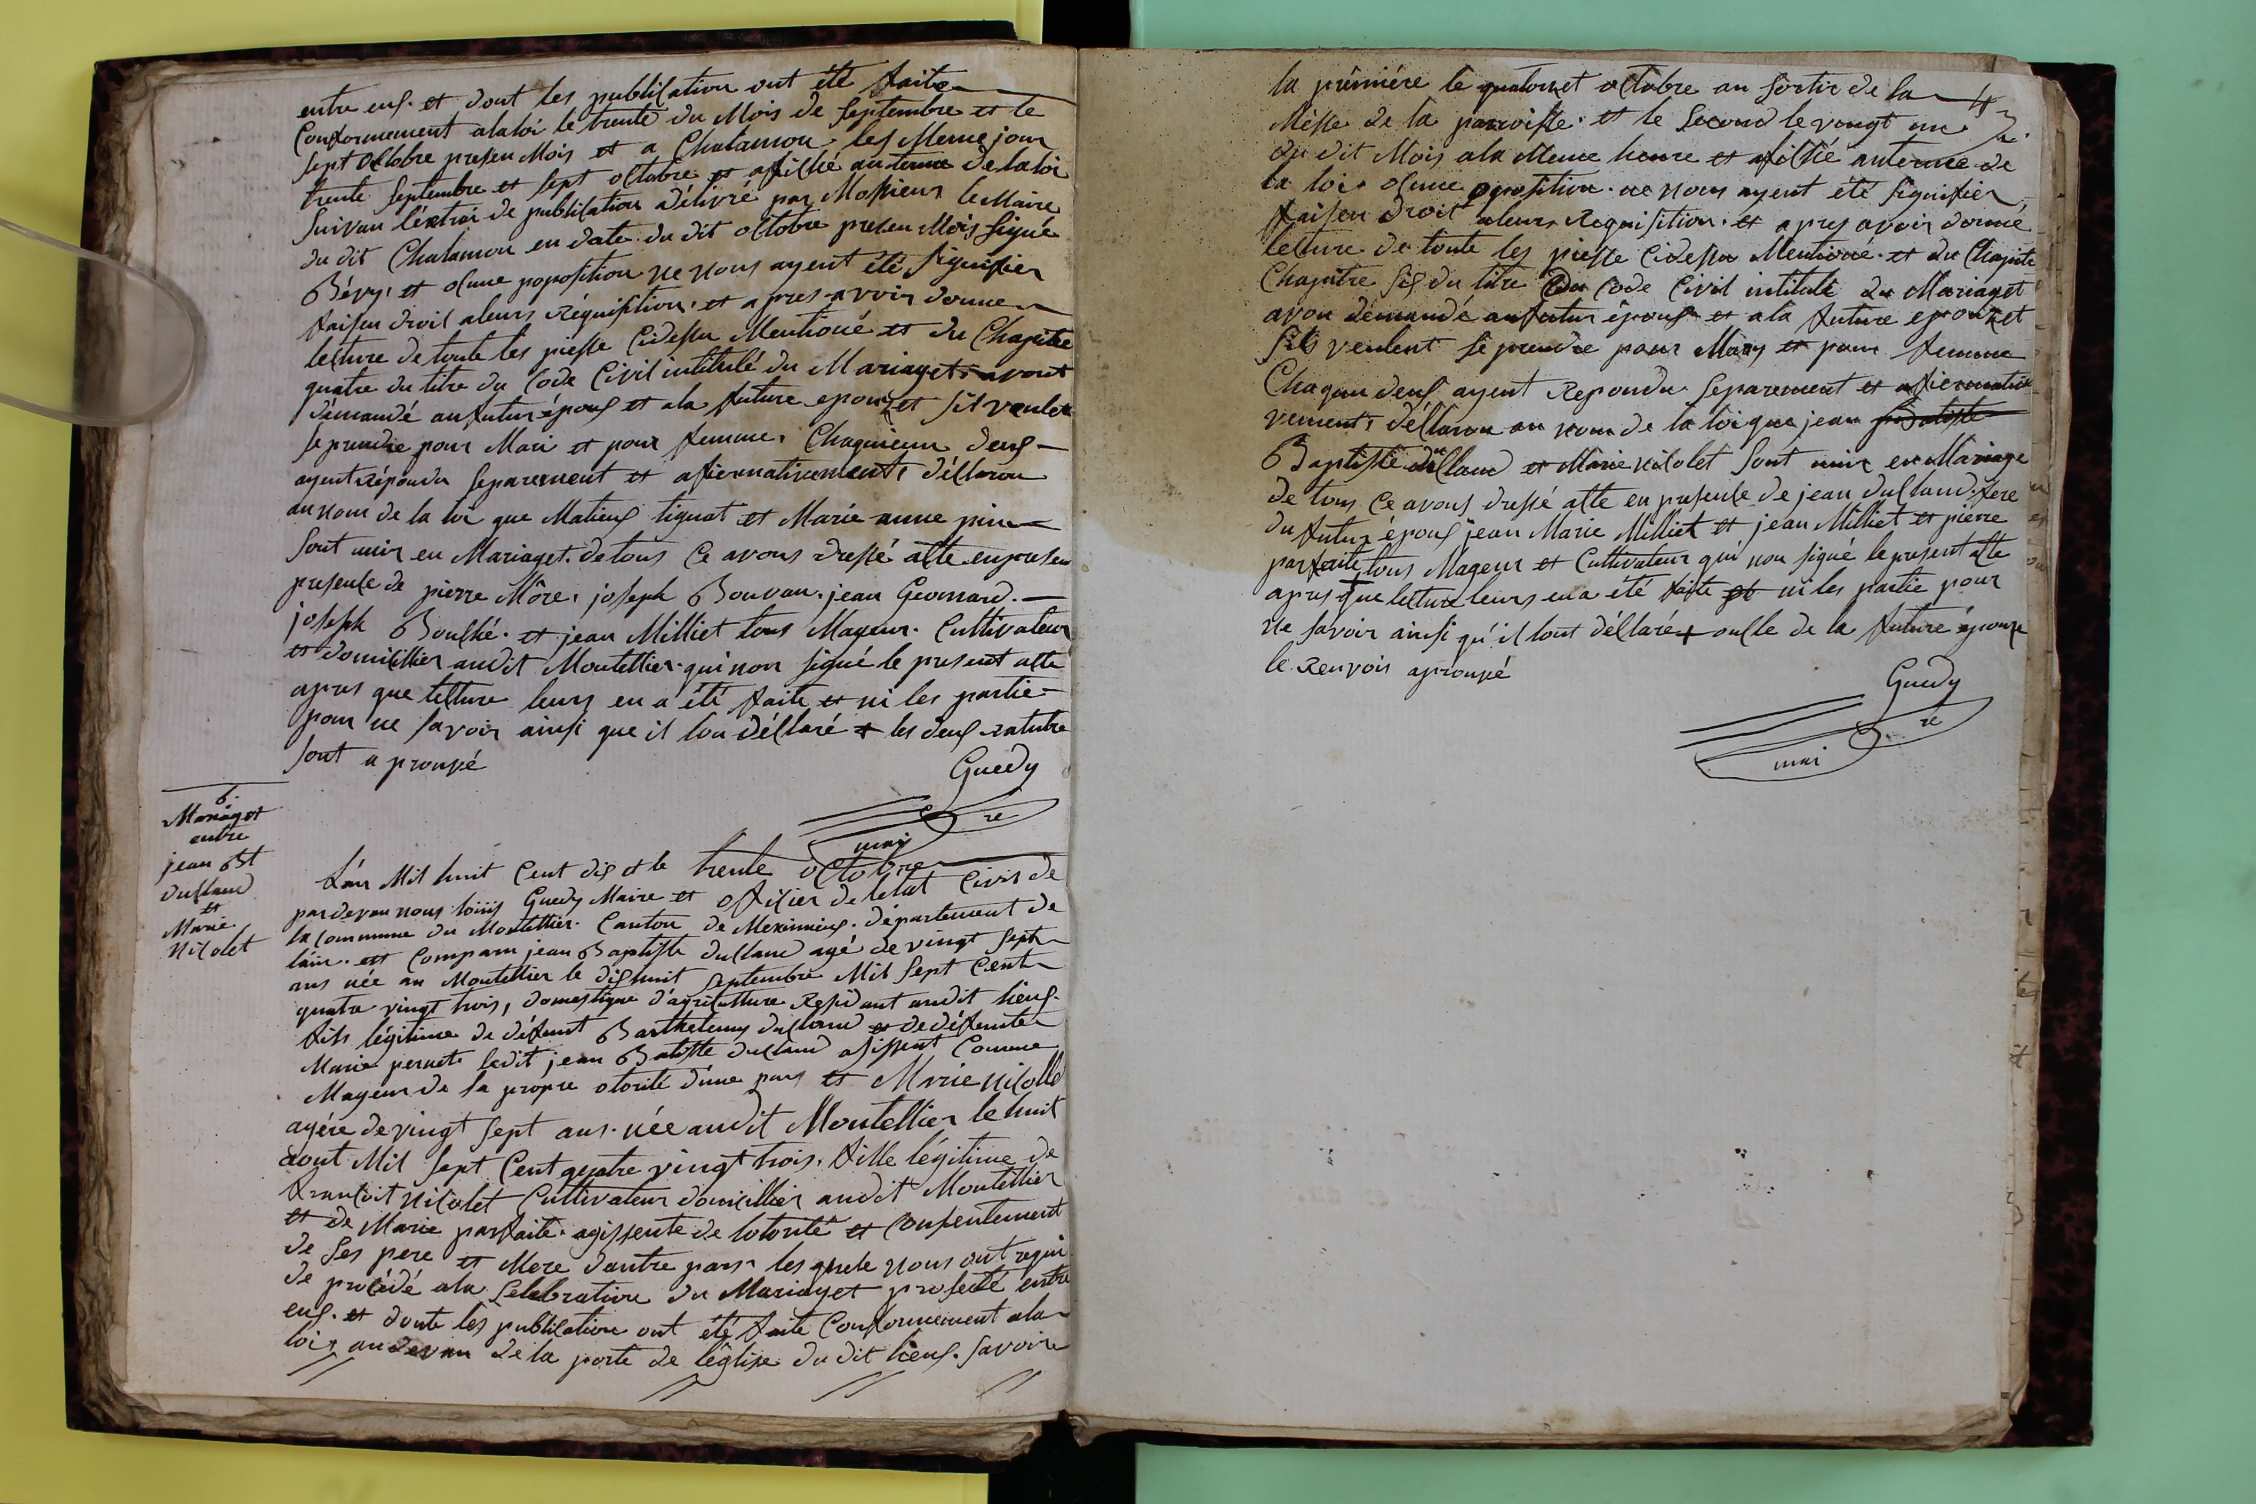 entre eux. et dont les publication ont été faite
Conformement ala loi le trente du Mois de Septembre et le
sept octobre presen Mois et a Chatamou les Meme jour
trente Septembre et sept octobre et afiché auterme de la loi
suivan l'extrai de publication délivré par Mosieur le Maire
du dit Chalamon en date du dit octobre presen Mois signé
Bévy, et ocune poposition ne nous ayent été signifier
faisen droit aleurs réquisition, et apres avoir donne
lecture de toute les piesse Cidessu Mentioné et du Chapitre
quatre du titre du Code Civil intitulé du Mariaget avont
démandé aufutur époux et ala future epouzet sil veulet
se prendre pour Mari et pour femme, Chaquieun deux
ayent répondu separement et afiermativement, déclaron
au nom de la loi que Matieux liguat et Marie anne pin
sont unir en Mariaget. de tous ce avons dressé acte en presen
presente de pierre Môre, joseph Bouvan. jean Geomard.
joseph Bouché. et jean Milliet tous Mageur. Cultivateur
et domicillier audit Montellier. qui non signé le present acte
apres que lecture leurs en a été faite et ni les partie
pour ne savoir ainsi que il lon déclaré + les deux rature
sont a prouvé
Guedy
maire
6.
Mariaget
entre
jean Bt
dusland
et
Marie
Nicolet
L'an Mil huit Cent dix et le trente octobre
pardevan nous loiiis Guedy Maire et officier de letat Civil de
la Commune du Montellier. Canton de Meximieux. département de
l'ain. est Comparu jean Baptiste dusland agé de vingt sept
ans née au Montellier le dixhuit septembre Mil sept Cent
quatre vingt trois, domestique d'agriculture Residant audit lieux.
fils légitime de défunt Barthelemy dusland et de défunte
Marie pernet. ledit jean Batiste dusland asissent Comme
Mageur de sa propre otorité d'une pars et Marie Nicolle
agére de vingt sept ans. née audit Montellier le huit
aout Mil sept Cent quatre vingt trois. fille légitime de
francoit Nicolet Cultivateur domicillier audit Montellier
et de Marie parfaite. agissente de lotorité et Consentement
de ses pere et Mere dautre pars. les quele nous ont requi
de procédé ala Selebration du Mariaget projecté entre
eux. et donte les publication ont été faite Conformement ala
loi, audevan de la porte de léglise du dit lieux. savoire
la première le quatorzet octobre au sortir de la
Messe de la paroisse. et le Second le vingt un
du dit Mois ala Meme heure et afiché auterme de
la loi. ocune oposition. ne nous ayent été signifier,
faisen droit aleurs Requisition. et apres avoir donné
lecture de toute les piesse Cidessu Mentioné. et du Chapitr
Chapitre six du titre du Code Civil intitulé du Mariaget
avon demandé aufutur époux et ala future epouzet
sils veulent se prendre pour Mary et pour femme
Chaqun deux ayent Repondu separement et afiermati
vement, déclaron au nom de la loi que jean Batiste
Baptiste dusland et Marie Nicolet sont unir en Mariage
de tous ce avons dressé acte en presente de jean dusland. frere
du futur époux jean Marie Milliet et jean Milliet et pierre
parfaite, tous Mageur et Cultivateur qui non signé le present acte
apres que lecture leurs en a été faite et ni les partie pour
ne savoir ainsi qu'il lont déclaré + oncle de la future épouze
le Renvois aprouvé
Guedy
maire